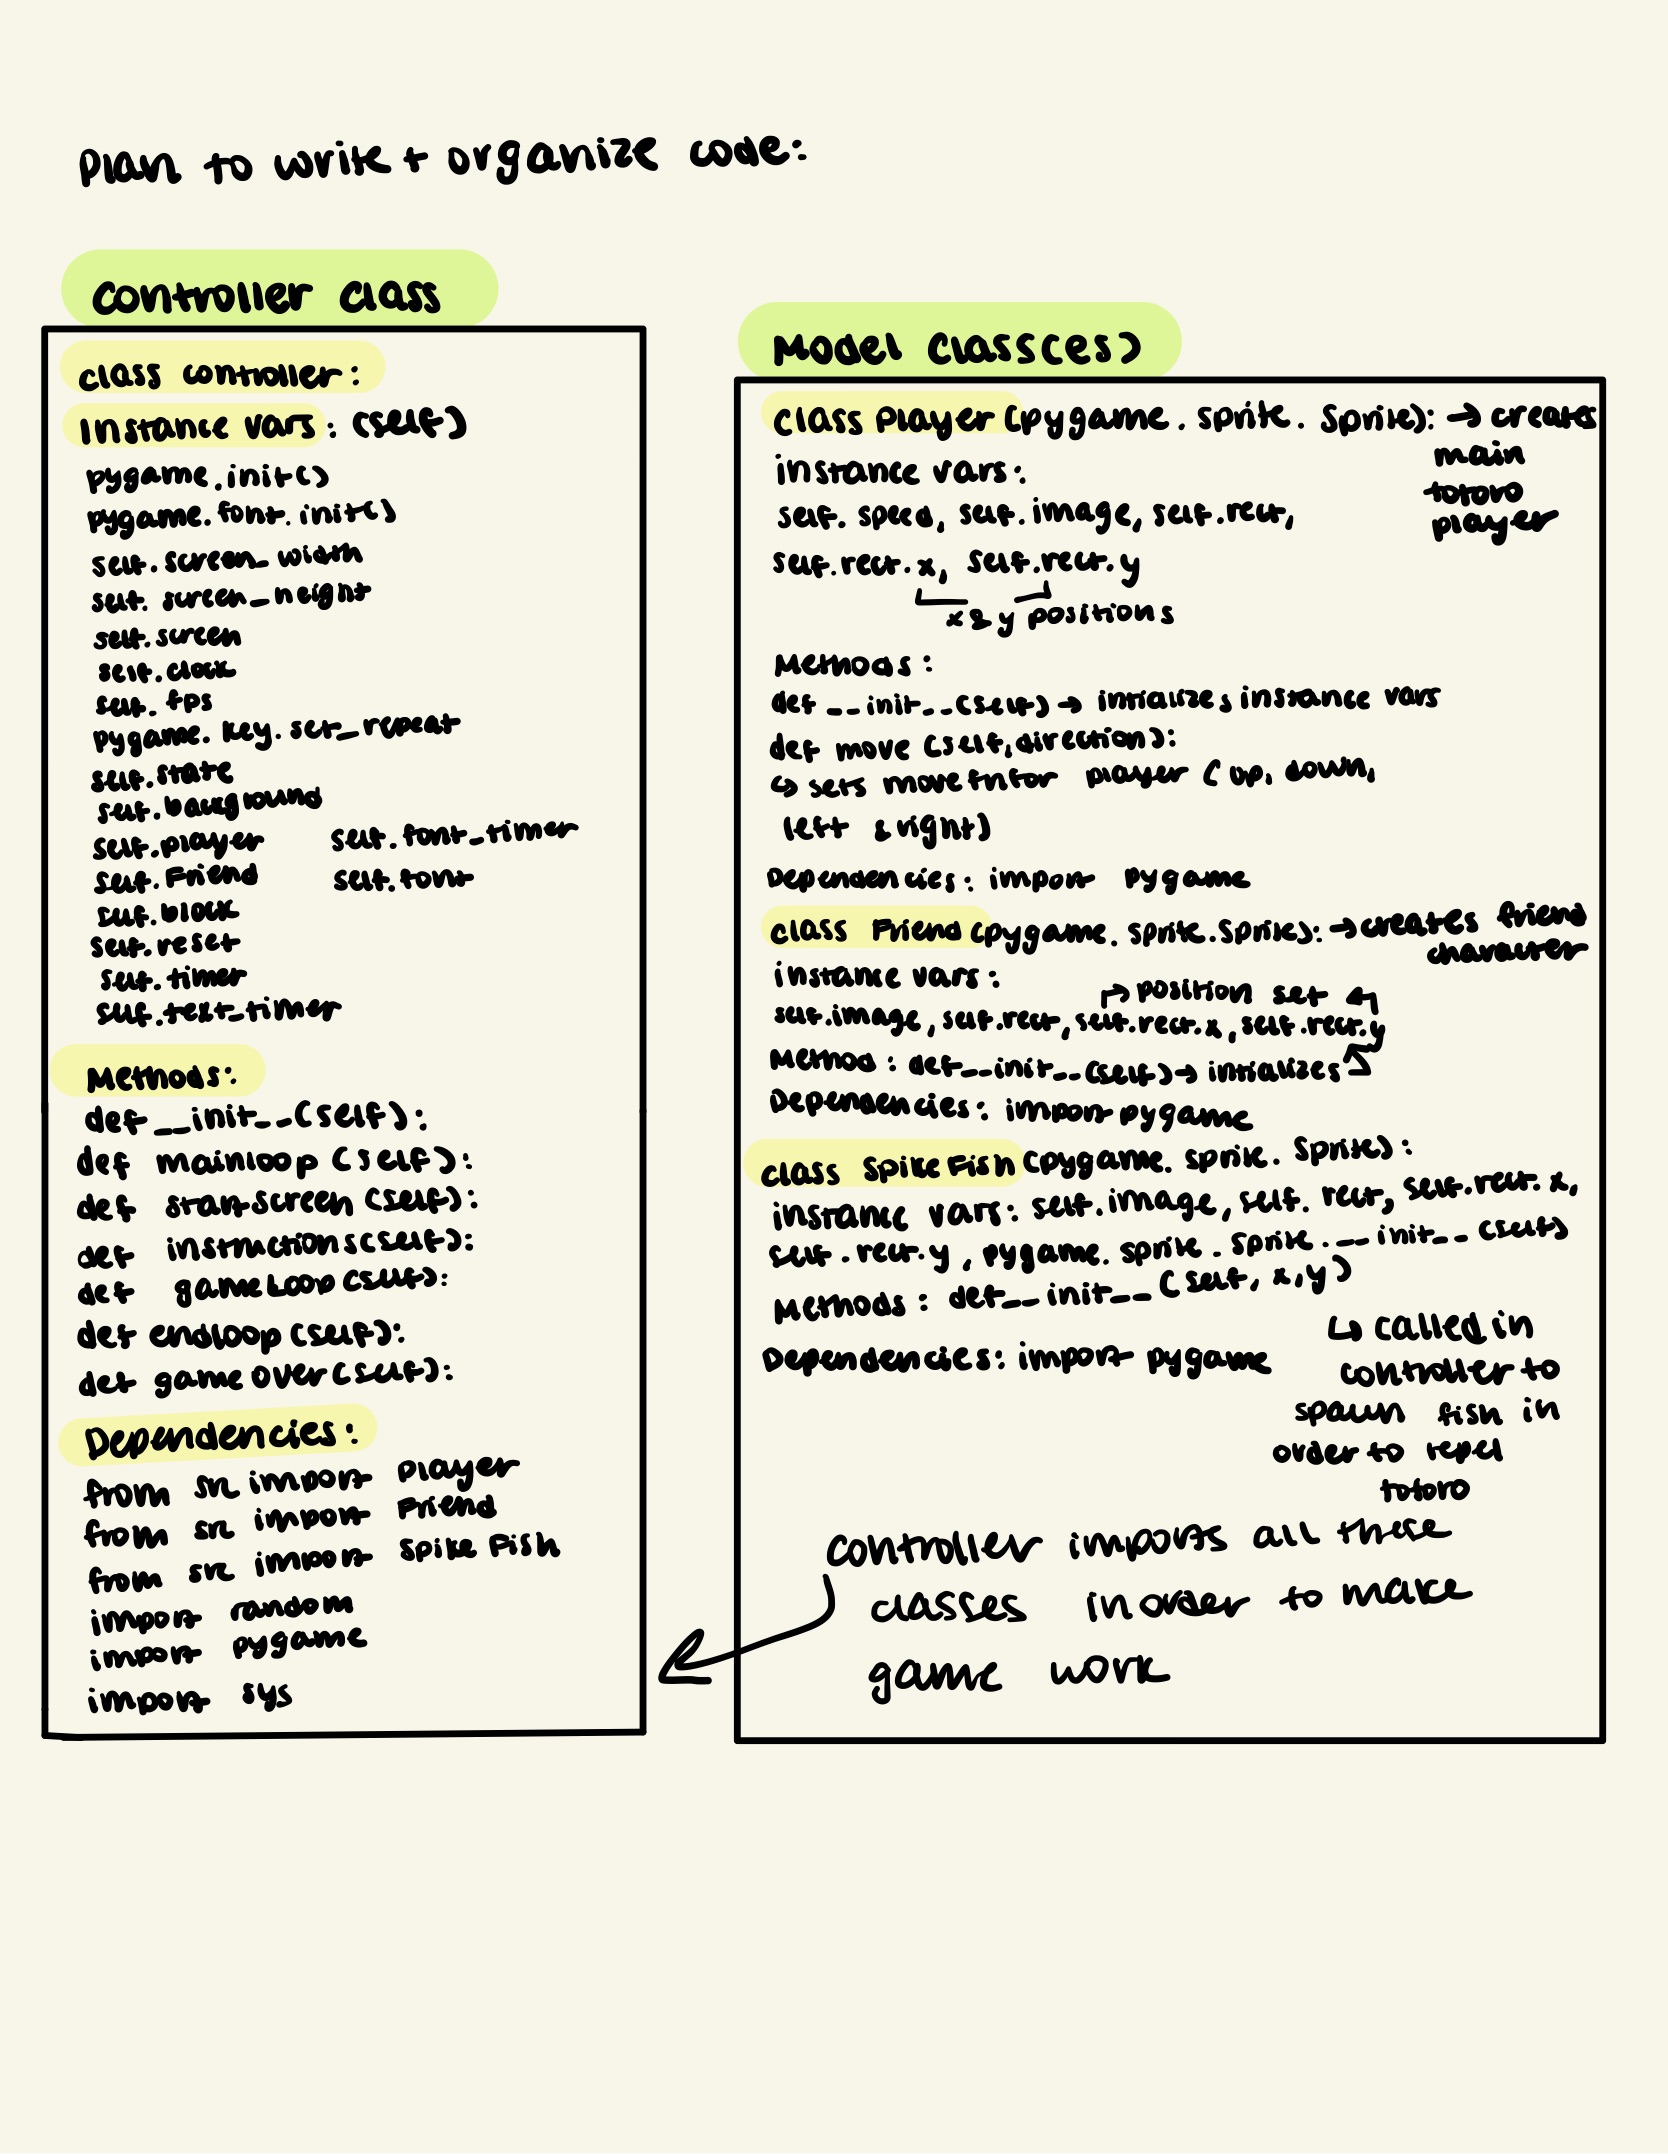 Plan to write + organize code:
Controller Class
class controller:
Instance vars: (self)
pygame.init()
pygame.font.init()
self.screen_width
self.screen_height
self.screen
self.clock
self.fps
pygame.key.set_repeat
self.state
self.background
self.player self.font_timer
self.Friend self.font
self.block
self.reset
self.timer
self.text_timer
Methods:
def __init__(self):
def mainloop (self):
def startscreen (self):
def instructions(self):
def gameLoop(self):
def endloop(self):
def gameOver(self):
Dependencies:
from src import player
from src import Friend
from src import SpikeFish
import random
import pygame
import sys
Model Class(es)
Class Player (pygame.sprite.Sprite): → creates
main
totoro
player
instance vars:
self.speed, self.image, self.rect,
self.rect.x, self.rect.y
x & y positions
Methods:
def __init__(self) → intializes instance vars
def move (self, direction):
↳ sets move fn for player (up, down,
left & right)
Dependencies: import pygame
class Friend (pygame.sprite.Sprite): → creates friend
character
instance vars:
position set
self.image, self.rect, self.rect.x, self.rect.y
Method: def__init__(self) → intializes
Dependencies: import pygame
class SpikeFish (pygame.sprite.Sprite):
instance vars: self.image, self.rect, self.rect.x,
self.rect.y, pygame.sprite.Sprite.__init__(self)
Methods: def__init__(self, x, y)
↳ called in
controller to
spawn fish in
order to repel
totoro
Dependencies: import pygame
Controller imports all these
classes in order to make
game work